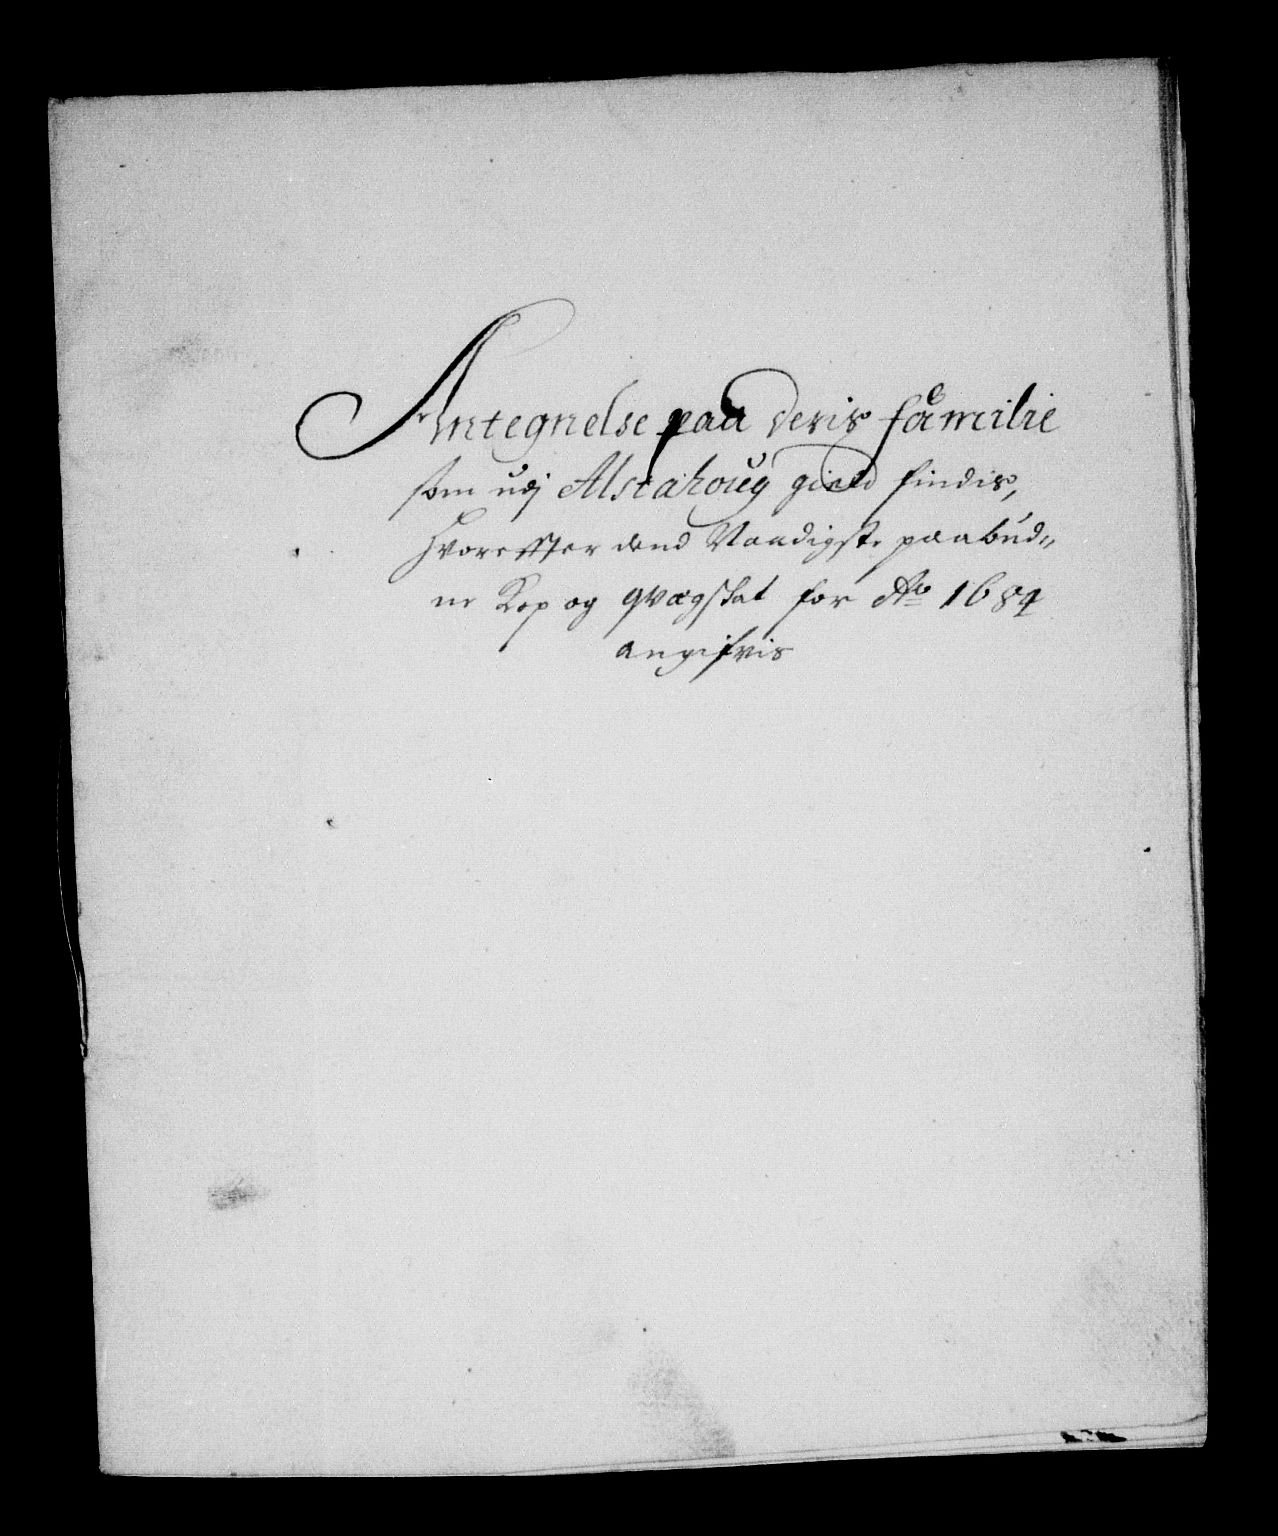 Antegnelse paa deris familie
som udj Alstahoug gield findis,
Hvoreffter dend Naadigste paabud„
ne Kop og qvægschat for Ao 1684
angifvis